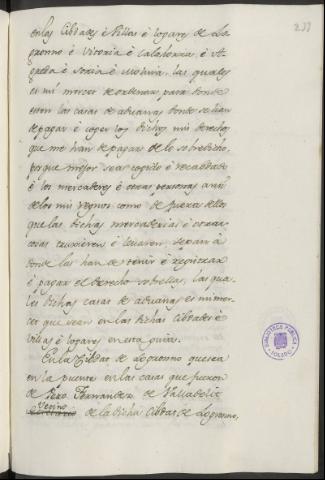 237
en las Cibdades è Villas è logares de Lo
gronno è Vitoria è Calahorra, è A
greda è Soria è Molina. las quales
es mi mercet de ordenar para donde
esten las casas de aduanas donde se han
de pagar è coger los dichos mis derechos
que me han de pagar de lo sobredicho,
porque mejor sea cogido è recabdado
è los mercaderes è otras personas ansi
de los mis regnos como de fuera dellos
que las dichas mercaderias è otras
cosas truxieren è levaren, sepan à
donde las han de venir è registrar
è pagar el derecho sobrellas, las qua
les dichas casas de aduanas es mi mer
cet que sean en las dichas Cibdades è
villas è logares en esta guisa.
En la Cibdat de Logronno que sea
en la puente en las casas que fueron
de Pero Fernandez de Valladolit
vecino
de la dicha Cibdat de Logronno,
BIBLIOTECA PUBLICA
TOLEDO